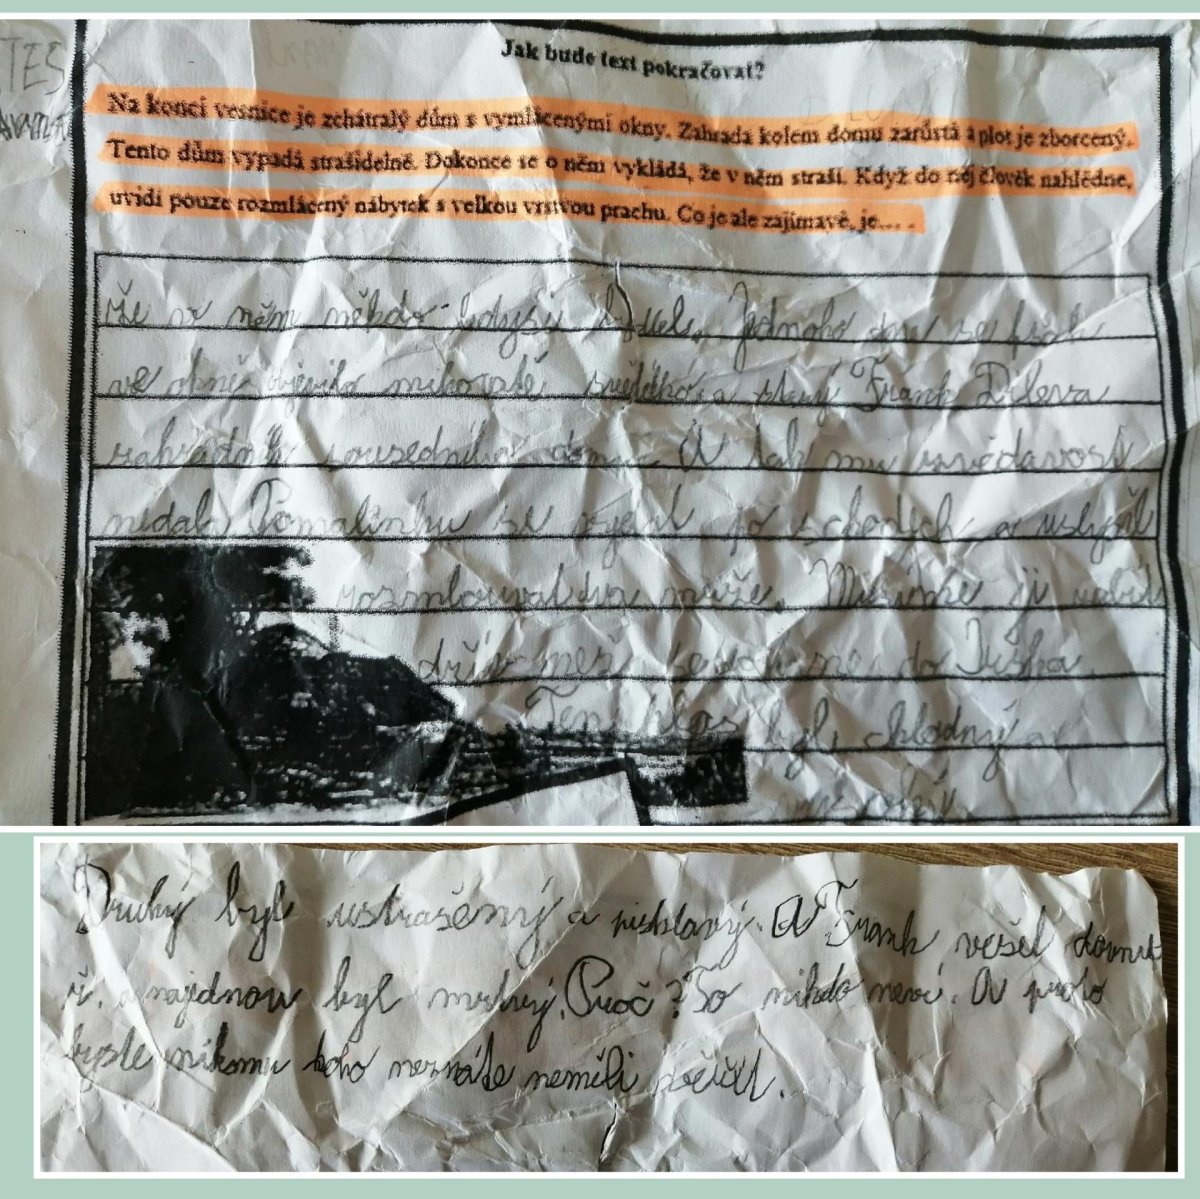 TES
Jak bude text pokračovat?
Na konci vesnice je zchátralý dům s vymlácenými okny. Zahrada kolem domu zarůstá a plot je zborcený.
Tento dům vypadá strašidelně. Dokonce se o něm vykládá, že v něm straší. Když do něj člověk nahlédne,
uvidí pouze rozmlácený nábytek s velkou vrstvou prachu. Co je ale zajímavé, je....
že v něm někdo kdysi bydlel. Jednoho dne se však
ve okně objevilo mihotavé a starý Frank
zahradník sousedního domu. A tak mu zvědavost
nedala Pomalinku se po schodech a uslyšel
rozmlouvat dva muže. Musíme ji
dřív než se do
Ten hlas byl chladný a
Druhý byl ustrašený a pisklavý. A Frank vešel dovnit
ř. a najednou byl mrtvý. Proč? To nikdo neví. A proto
byste nikmu koho neznáte neměli věřit.